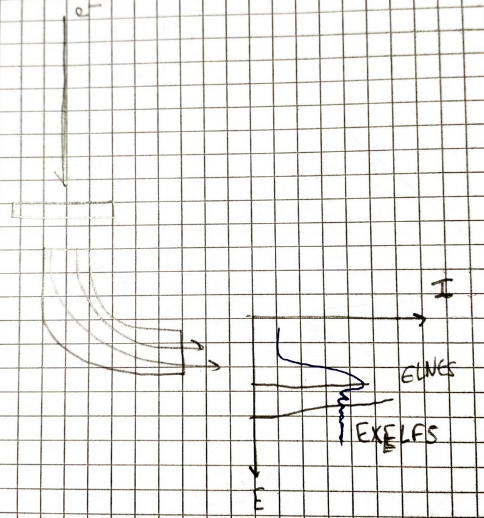 e⁻
I
ELNES
EXELFS
E